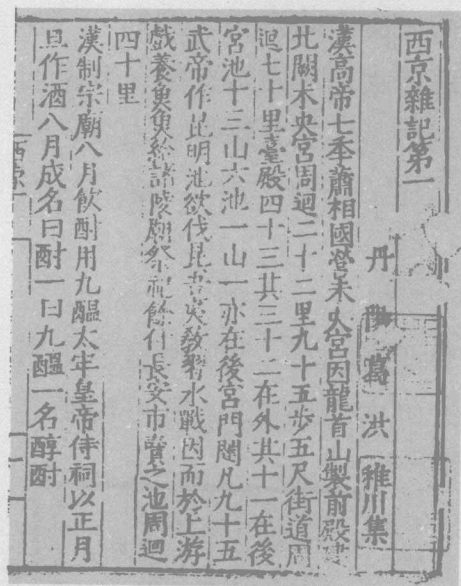 西京雜記第一
丹陽葛洪稚川集
漢高帝七年蕭相國營未央宮因龍首山製前殿建
北闕未央宮周迴二十二里九十五步五尺街道周
迴七十里臺殿四十三其三十二在外其十一在後
宮池十三山六池一山一亦在後宮門闥凡九十五
武帝作昆明池欲伐昆吾夷教習水戰因而於上游
戲養魚魚給諸陵廟祭祀餘付長安市賣之池周迴
四十里
漢制宗廟八月飲酎用九醞太牢皇帝侍祠以正月
旦作酒八月成名曰酎一曰九醞一名醇酎
西京一